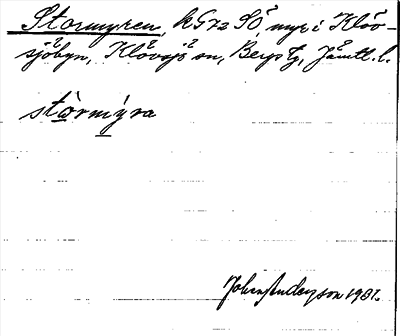 Stormyren, kG72 SÖ myr i Klöv-
sjöbyn, Klövsjö sn, Bergs tg, Jämtl. l.
stòrmýra
Johan Anderson 1932